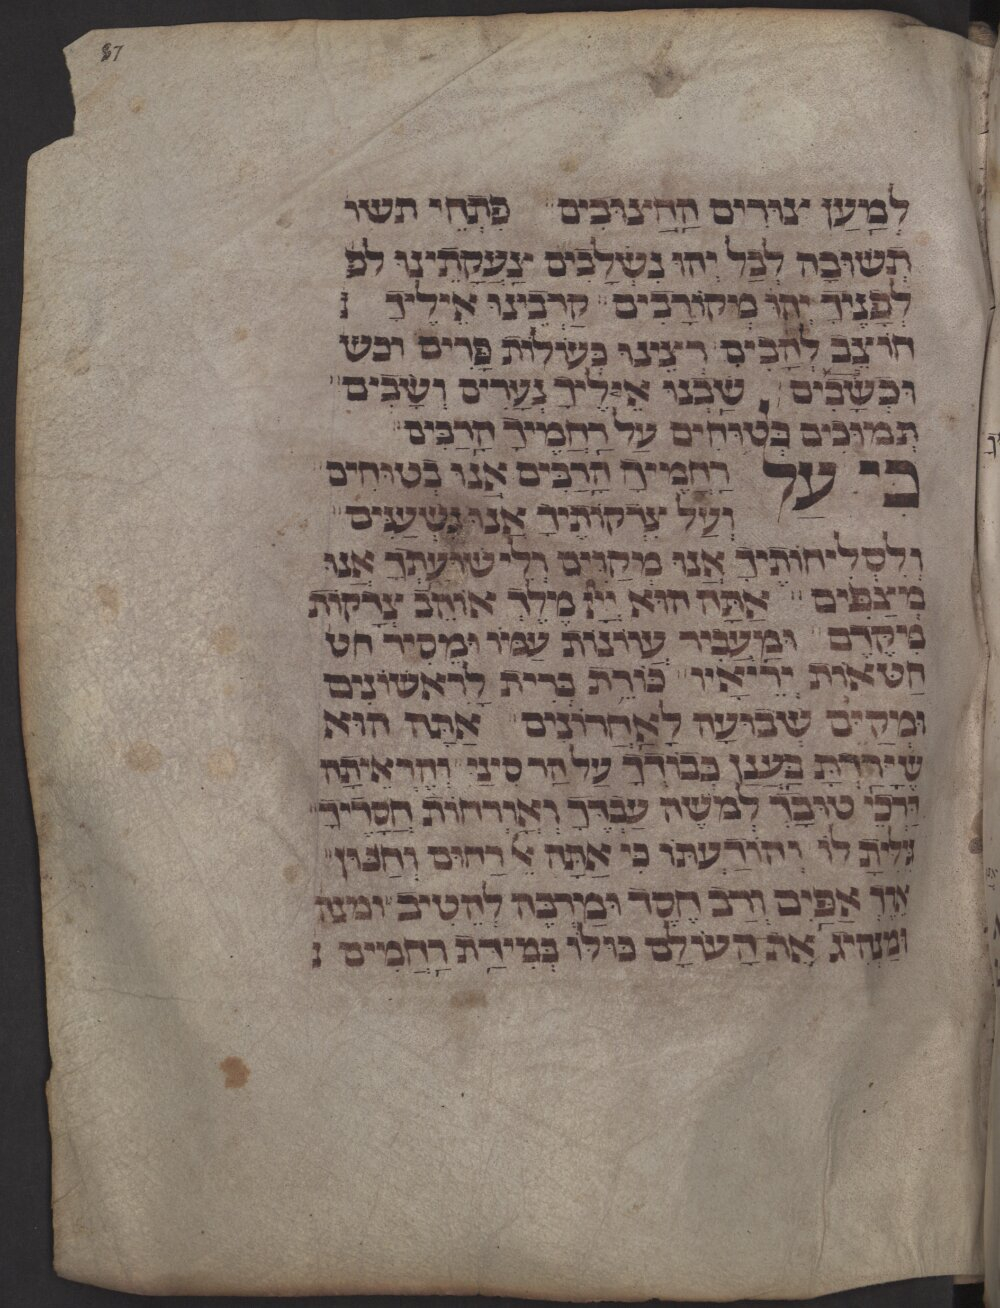 87
לְמַעַן יצוּרִים הַחֲצוּבִים פִּתְחֵי תשו
תְּשׁוּבָה לְבַל יְהוּ נִשְׁלָבִים צַעֲקָתֵינוּ לפ
לְפָנֶיךָ יִהְיוּ מְקוֹרָבִים קָרְבֵינוּ אֵילֶיךָ
חוֹצֵב לְהָבִים רְצֵינוּ כְּעוֹלוֹת פָּרִים וכש
וּכְשָׂבִים שַׁבְנוּ אֵילֶיךָ נְעָרִים וְשָׂבִים
תְּמוּכִים בְּטוּחִים עַל רַחֲמֶיךָ הָרַבִּים
כִּי עַל רַחֲמֶיךָ הָרַבִּים אָנוּ בְטוּחִים
וְעַל צִדְקוֹתֶיךָ אָנוּ נִשְׁעָנִים
וְלִסְלִיחוֹתֶיךָ אָנוּ מְקַוִּים וְלִישׁוּעָתְךָ אָנוּ
מְצַפִּים אַתָּה הוּא מֶלֶךְ אוֹהֵב צְדָקוֹת
מִקֶּדֶם וּמַעֲבִיר עֲוֹנוֹת עַמּוֹ וּמֵסִיר חט
חַטֹּאות יְרֵיאָיו כּוֹרֵת בְּרִית לָרִאשׁוֹנִים
וּמְקַיֵּם שְׁבוּעָה לָאַחֲרוֹנִים אַתָּה הוּא
שֶׁיָּרַדְתָּ בַּעֲנַן כְּבוֹדֶךָ עַל הַר סִינַי וְהֶרְאֵיתָה
דַּרְכֵי טוּבָךְ לְמֹשֶׁה עַבְדֶּךָ וְאוֹרְחוֹת חֲסָדֶיךָ
גִּלִּיתָ לוֹ וְהוֹדַעְתּוֹ כִּי אַתָּה אֵל רַחוּם וְחַנּוּן
אֶרֶךְ אַפַּיִם וְרַב חֶסֶד וּמַרְבֶּה לְהֵטִיב ומנה
וּמַנְהִיג אֶת הָעוֹלָם כּוּלּוֹ בְּמִידַּת רַחֲמִים